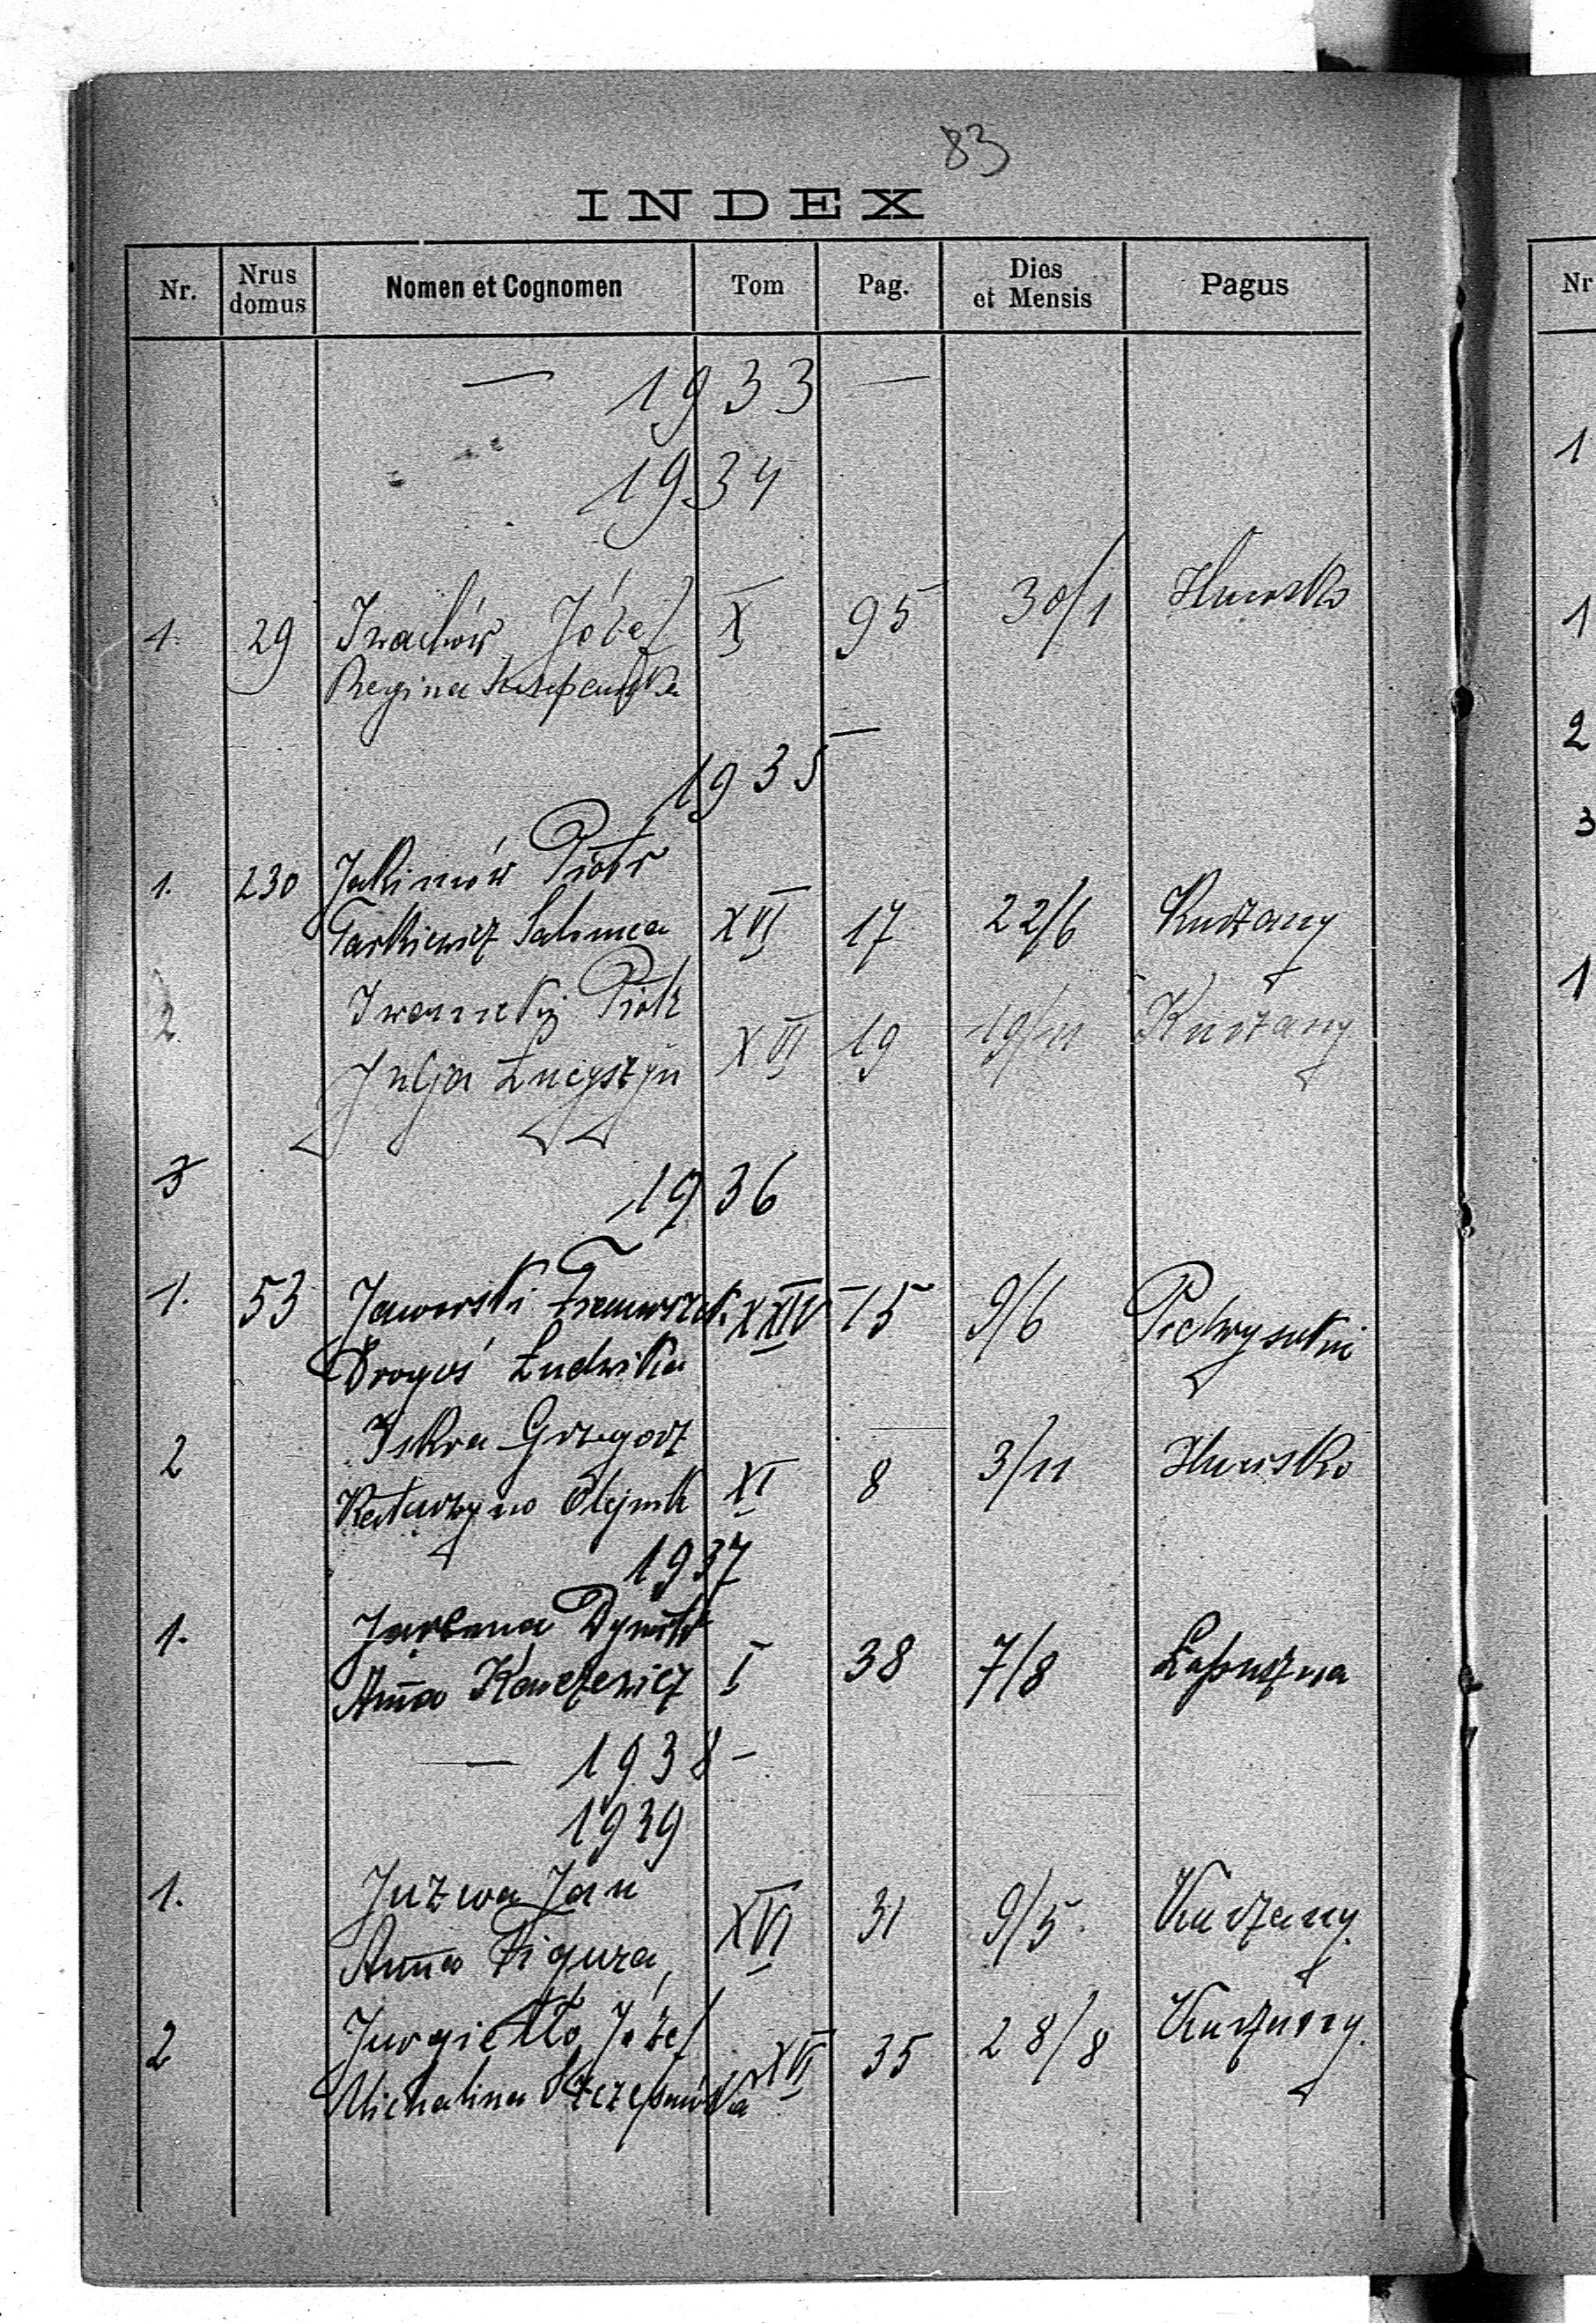 83
INDEX
Nr. Nrus domus Nomen et Cognomen Tom Pag. Dies et Mensis Pagus
— 1933 —
1934
1. 29 Iwachów Józef X 95 30/1 Hucisko
Regina
1935
1. 230 Jakimów Piotr
Tarkiewicz Salomea XVI 17 22/6 Kurzany
2 Iwanicki Piotr
Julja Łucyszyn XVI 19 19/11 Kurzany
3
1936
1. 53 Jaworski Franciszek XXIV 15 9/6
Drogoś Ludwika
2 Iskra Grzegorz
Katarzyna Olejnik XI 8 3/11 Hucisko
1937
1. Dymitr
Anna I 38 7/8 Łapszyna
— 1938 —
1939
1. Juzwa Jan
Anna Figura XVI 31 9/5 Kurzany.
2 Jurgiełło Józef XVI 35 28/8 Kurzany.
Michalina Szczepańska
Nr
1
1
2
3
1